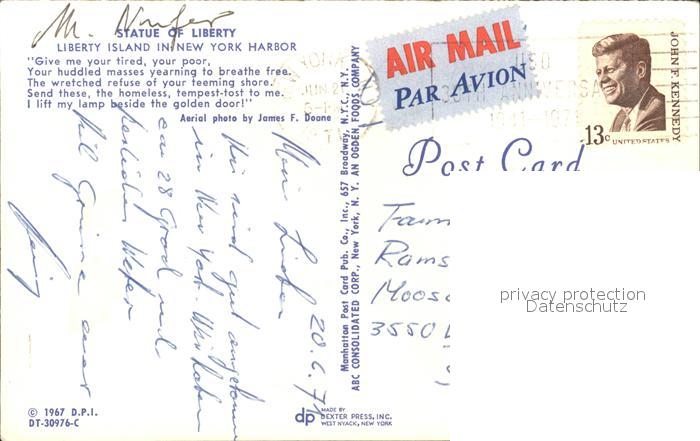 M. Nufer
STATUE OF LIBERTY
LIBERTY ISLAND IN NEW YORK HARBOR
"Give me your tired, your poor,
Your huddled masses yearning to breathe free.
The wretched refuse of your teeming shore.
Send these, the homeless, tempest-tost to me.
I lift my lamp beside the golden door!"
Aerial photo by James F. Doane
20.6.71
Meine Lieben
Wir sind gut angekommen
in New York. Wir haben
ca 28 Grad und
herrliches Wetter
© 1967 D.P.I.
DT-30976-C
Manhattan Post Card Pub. Co., Inc., 657 Broadway, N.Y.C., N.Y.
ABC CONSOLIDATED CORP., New York, N. Y. AN OGDEN FOODS COMPANY
dp
MADE BY
DEXTER PRESS, INC.
WEST NYACK, NEW YORK
AIR MAIL
PAR AVION
JUN 2
USO
30TH ANNIVERSA
1941-1971
JOHN F. KENNEDY
13c
UNITED STATES
Post Card
Fam
Rams
Moos
3550 L
privacy protection
Datenschutz